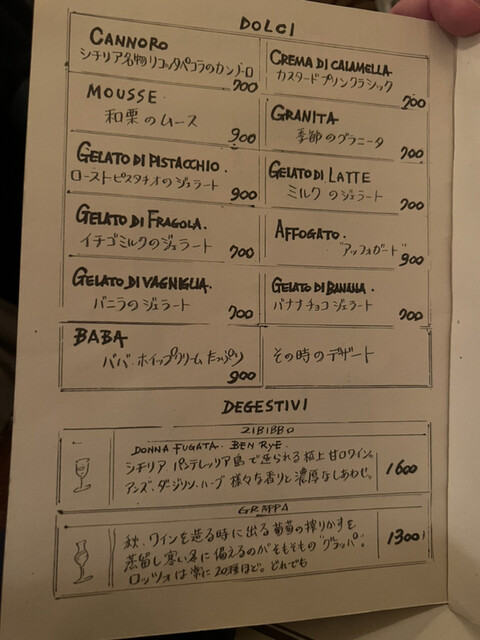 DOLCI
CANNORO
シチリア名物リコッタペコラのカンノーロ
700
CREMA DI CALAMELLA
カスタードプリンクラシック
700
MOUSSE
和栗のムース
900
GRANITA
季節のグラニータ
700
GELATO DI PISTACCHIO.
ローストピスタチオのジェラート
900
GELATO DI LATTE
ミルクのジェラート
700
GELATO DI FRAGOLA.
イチゴミルクのジェラート
700
AFFOGATO.
"アッフォガート"
900
GELATO DI VAGNIGLIA.
バニラのジェラート
700
GELATO DI BANANA.
バナナチョコジェラート
700
BABA
ババ・ホイップクリームたっぷり
900
その時のデザート
DEGESTIVI
ZIBIBBO
DONNA FUGATA. BEN RYE.
シチリア パンテレッリア島で造られる極上甘口ワイン。
アンズ、ダージリン、ハーブ 様々な香りと濃厚なしあわせ。
1600
GRAPPA
秋、ワインを造る時に出る葡萄の搾りかすを
蒸留し寒い冬に備えるのがそもそもの"グラッパ"。
ロッツォは常に20種ほど。どれでも
1300